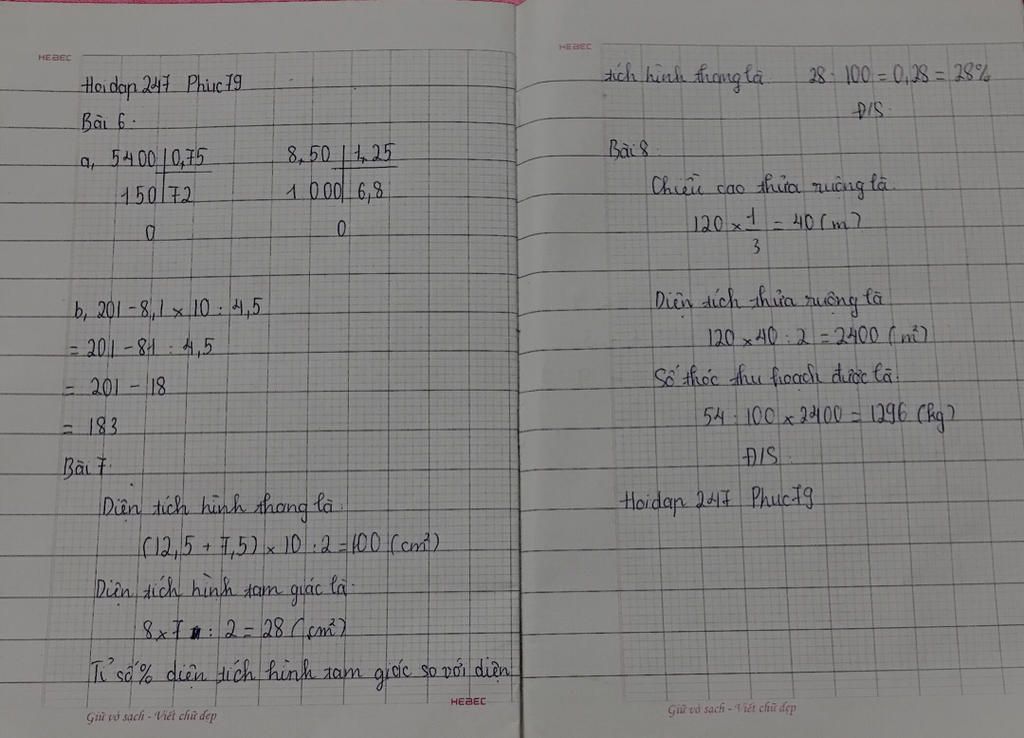 HEBEC
Hoidap 247 Phuc79
Bài 6:
a, 5400 | 0,75    8,50 | 1,25
150 | 72    1 000 | 6,8
0    0
b, 201 - 8,1 × 10 : 4,5
= 201 - 81 : 4,5
= 201 - 18
= 183
Bài 7:
Diện tích hình thang là:
(12,5 + 7,5) × 10 : 2 = 100 (cm²)
Diện tích hình tam giác là:
8 × 7 : 2 = 28 (cm²)
Tỉ số % diện tích hình tam giác so với diện
HEBEC
Giữ vở sạch - Viết chữ đẹp
HEBEC
tích hình thang là    28 : 100 = 0,28 = 28%
Đ/S:
Bài 8:
Chiều cao thửa ruộng là:
120 × 1/3 = 40 (m)
Diện tích thửa ruộng là
120 × 40 : 2 = 2400 (m²)
Số thóc thu hoạch được là:
54 : 100 × 2400 = 1296 (kg)
Đ/S:
Hoidap 247 Phuc79
Giữ vở sạch - Viết chữ đẹp